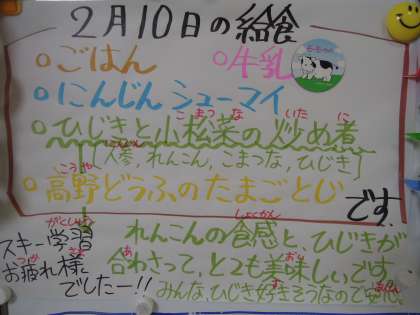 2月10日の給食
○ごはん ○牛乳
○にんじんシューマイ
○ひじきと小松菜の炒め煮
[人参、れんこん、こまつな、ひじき]
○高野どうふのたまごとじ
です。
スキー学習
お疲れ様
でしたー!!
れんこんの食感と、ひじきが
合わさって、とても美味しいです。
みんな、ひじき好きそうなので